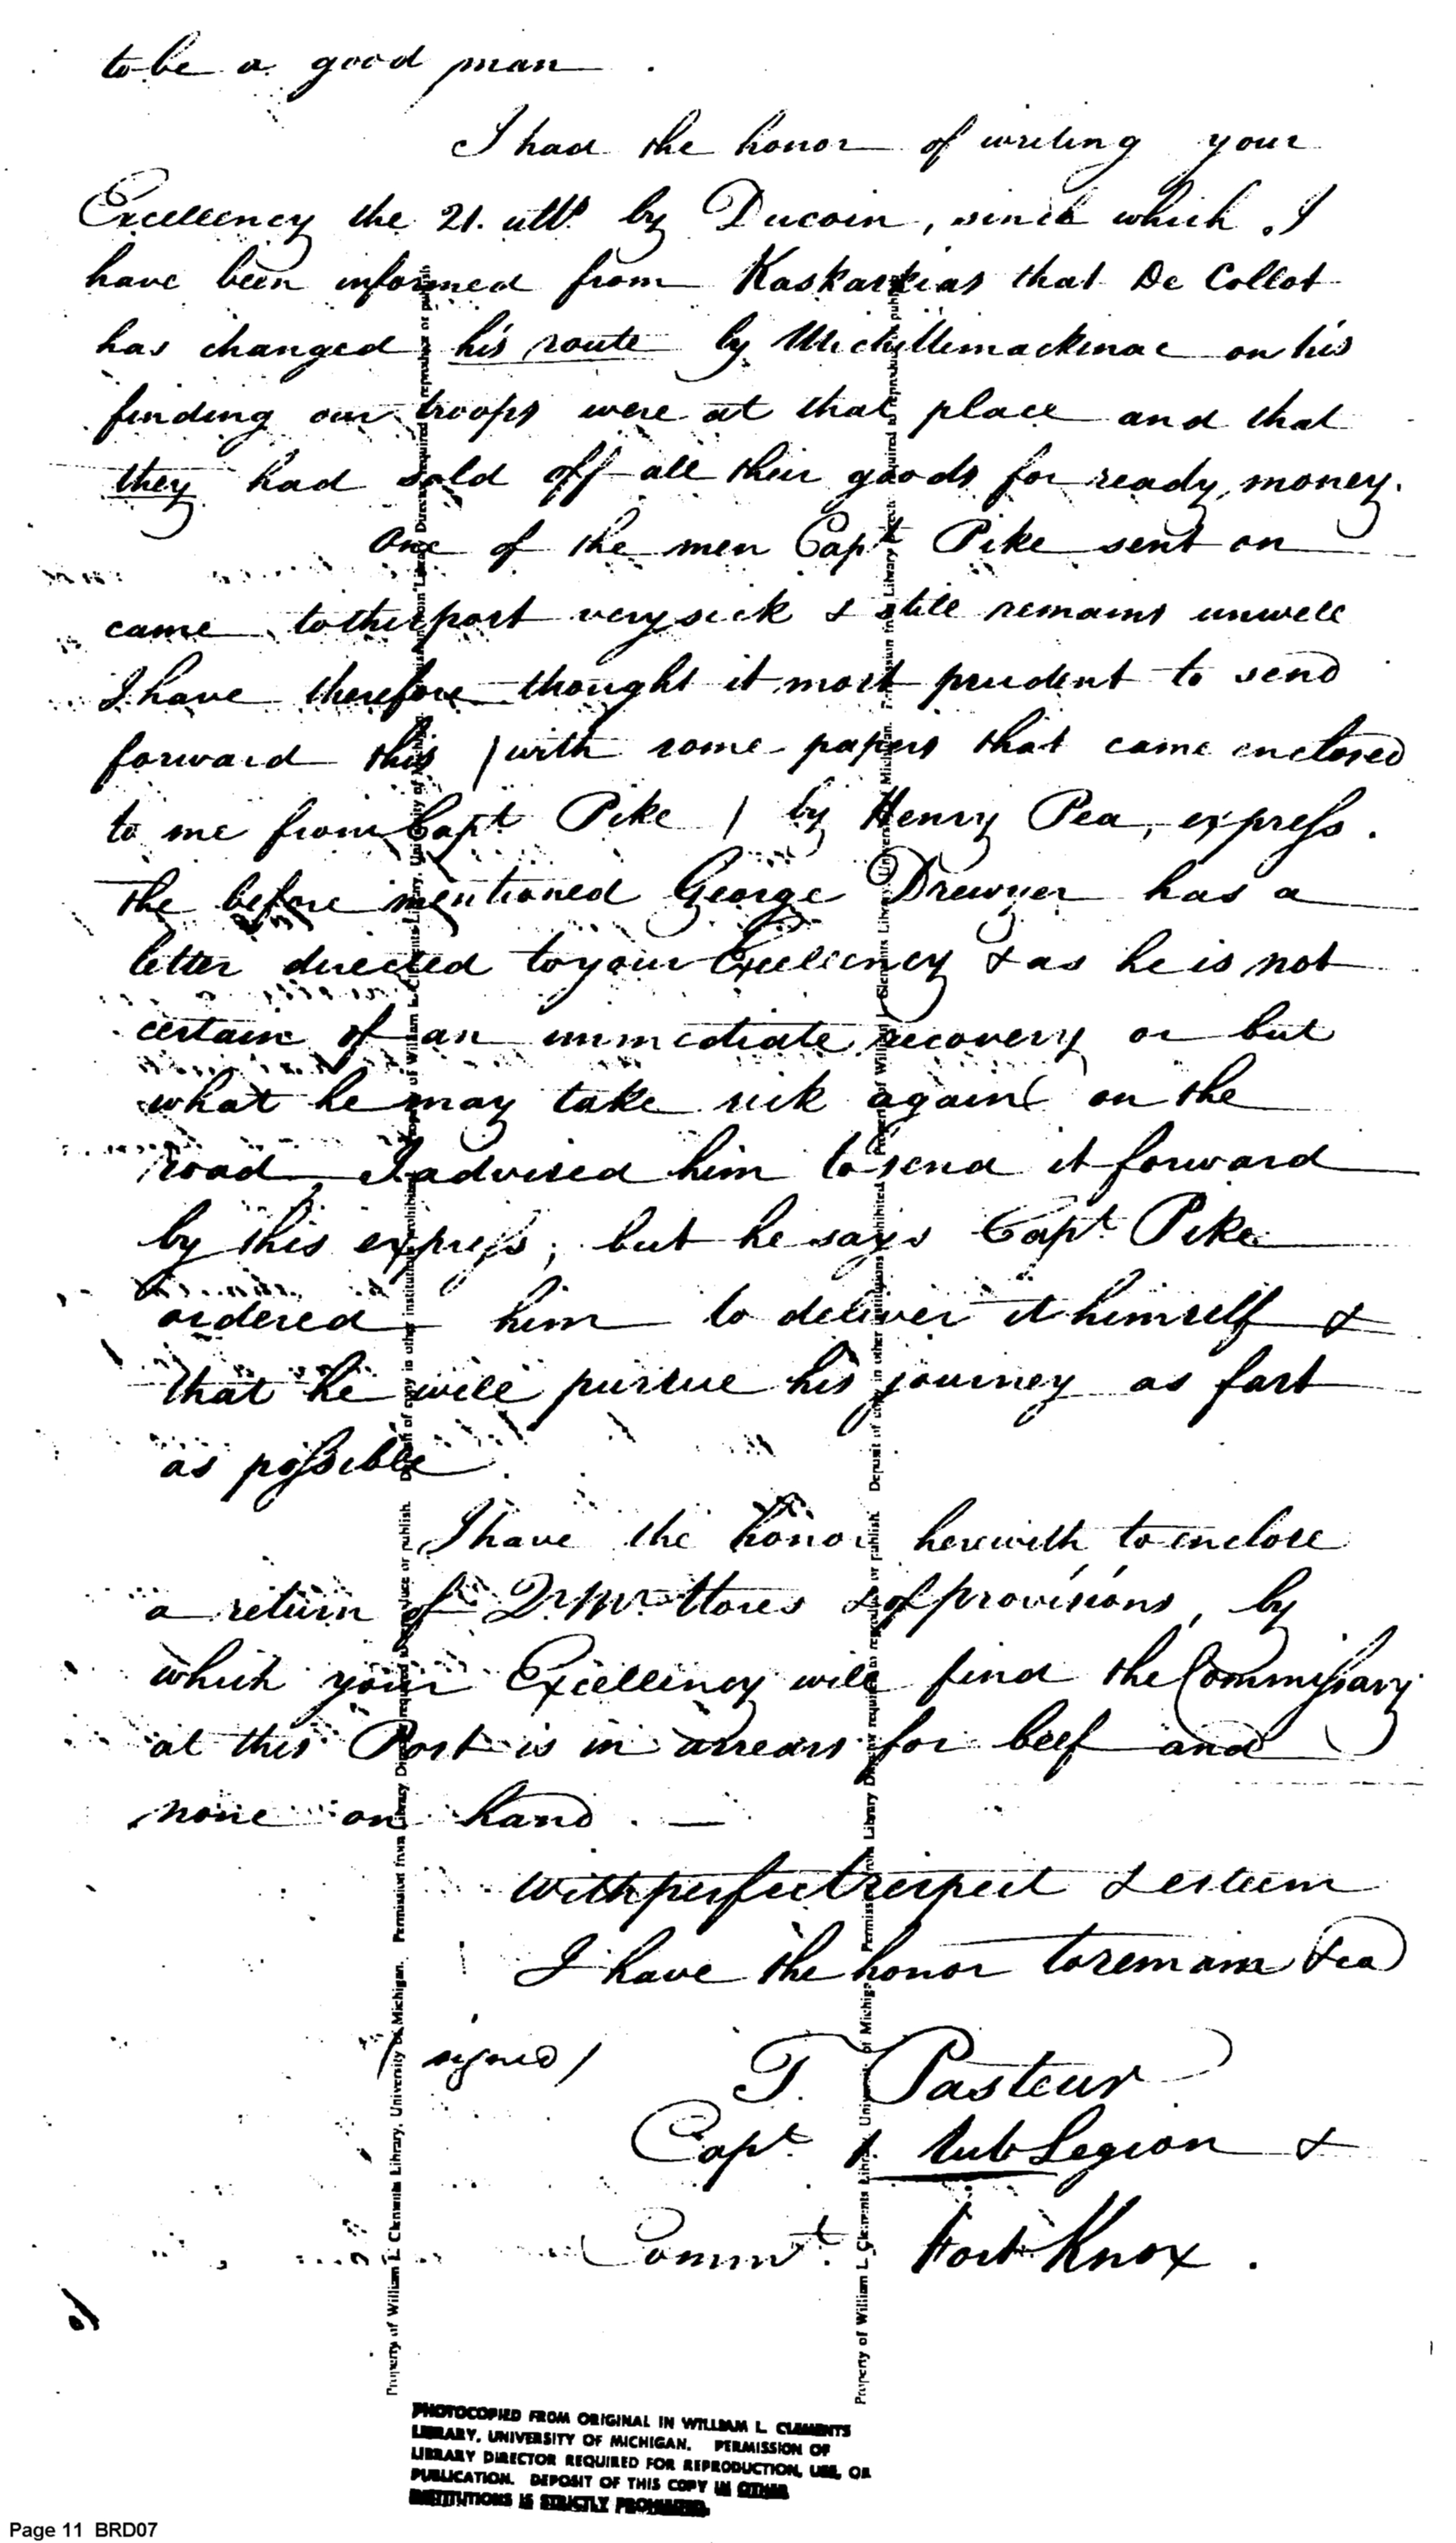 to be a good man .
I had the honor of writing your
Excellency the 21. ulto by Ducoin, since which I
have been informed from Kaskaskias that De Collot
has changed his route by Michillemackenac on his
finding our troops were at that place and that
they had sold off all their goods for ready money.
One of the men Capt Pike sent on
came to the post very sick & still remains unwell
I have therefore thought it most prudent to send
forward this / with some papers that came enclosed
to me from Capt Pike / by Henry Pea, express .
The before mentioned George Drewyer has a
letter directed to your Excellency & as he is not
certain of an immediate recovery or but
what he may take sick again on the
road, I advised him to send it forward
by this express, but he says Capt Pike
ordered him to deliver it himself &
that he will pursue his journey as fast
as possible
I have the honor herewith to enclose
a return of Qr. Mr. Stores & of provisions, by
which your Excellency will find the Commissary
at this Post is in arrears for beef and
none on hand . —
With perfect respect & esteem
I have the honor to remain &ca
/ signed / T. Pasteur
Capt 1 Sub Legion &
Commt. Fort Knox .
Property of William L. Clements Library, University of Michigan. Permission from Library Director required to reproduce or publish. Deposit of copy in other institutions prohibited.
Property of William L. Clements Library, University of Michigan. Permission from Library Director required to reproduce or publish. Deposit of copy in other institutions prohibited.
PHOTOCOPIED FROM ORIGINAL IN WILLIAM L. CLEMENTS
LIBRARY, UNIVERSITY OF MICHIGAN. PERMISSION OF
LIBRARY DIRECTOR REQUIRED FOR REPRODUCTION, USE, OR
PUBLICATION. DEPOSIT OF THIS COPY IN OTHER
INSTITUTIONS IS STRICTLY PROHIBITED.
Page 11 BRD07